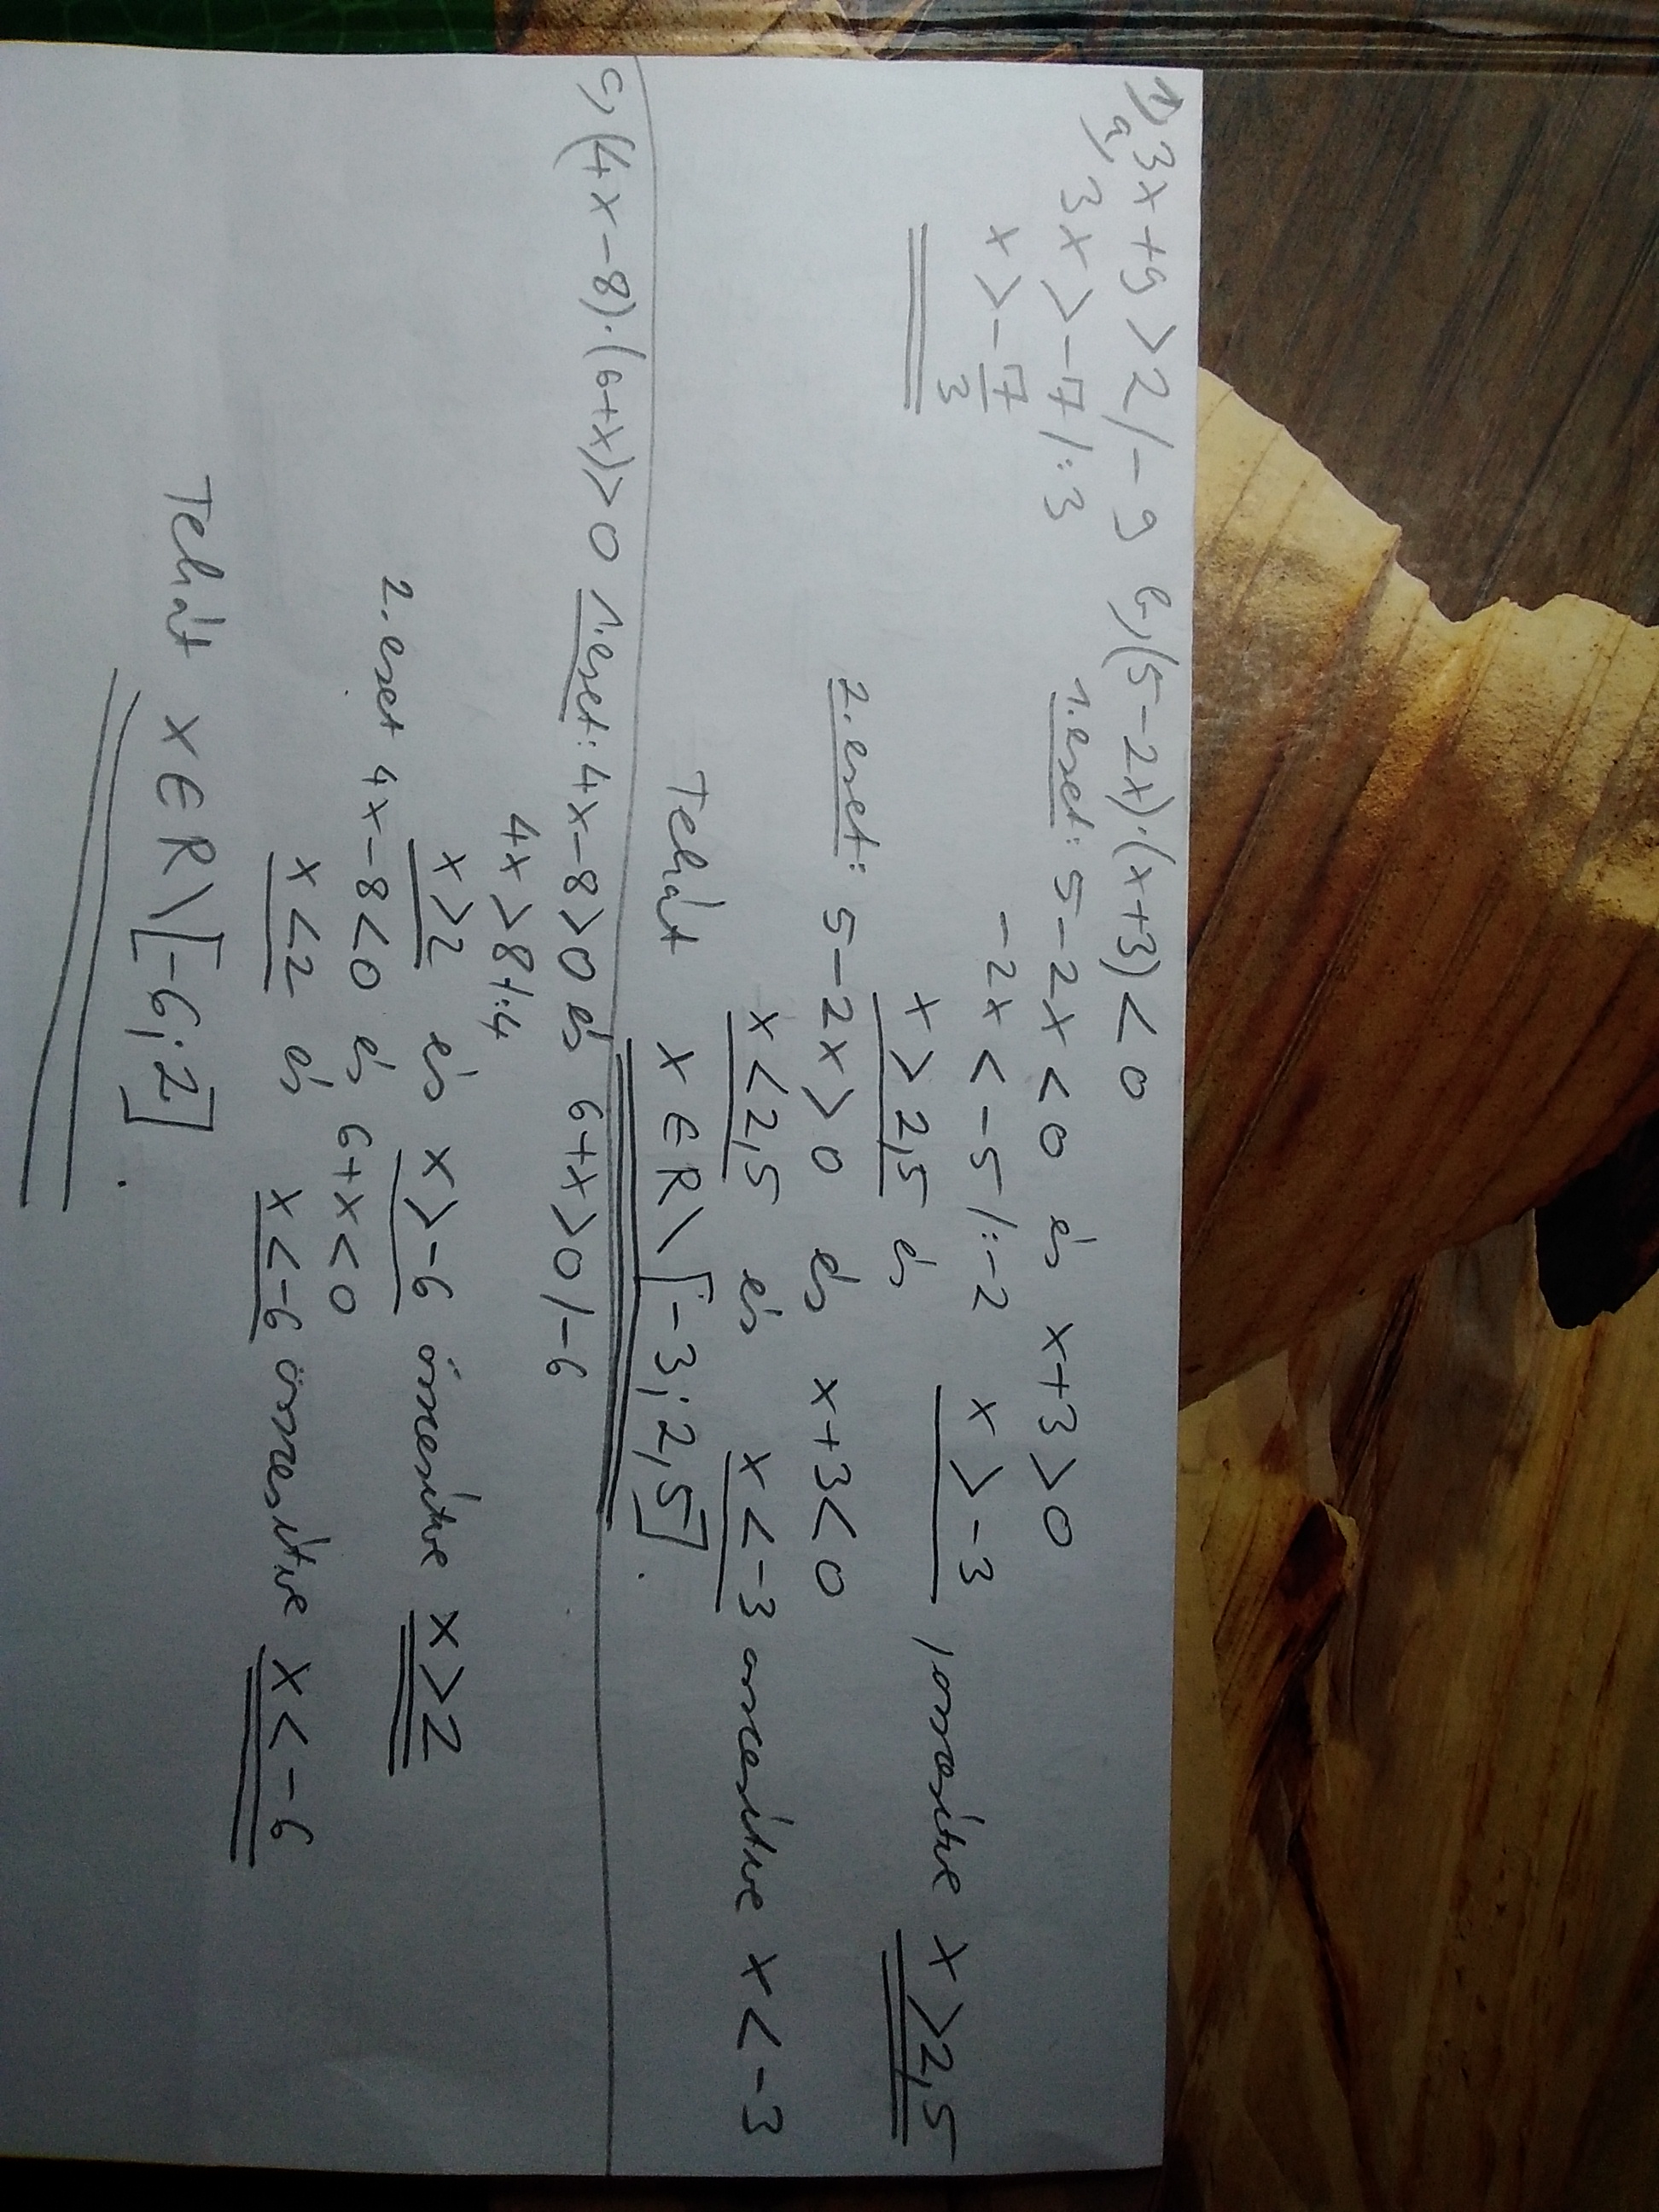 1) 3x+9>2 /-9 b, (5-2x)·(x+3)<0
a, 3x>-7 /:3 1. eset: 5-2x<0 és x+3>0
x>-7/3 -2x<-5 /:-2 x>-3
x>2,5 és összesítve x>2,5
2. eset: 5-2x>0 és x+3<0
x<2,5 és x<-3 összesítve x<-3
Tehát x∈R\[-3;2,5].
c, (4x-8)·(6+x)>0 1. eset: 4x-8>0 és 6+x>0 /-6
4x>8 /:4
x>2 és x>-6 összesítve x>2
2. eset 4x-8<0 és 6+x<0
x<2 és x<-6 összesítve x<-6
Tehát x∈R\[-6;2].